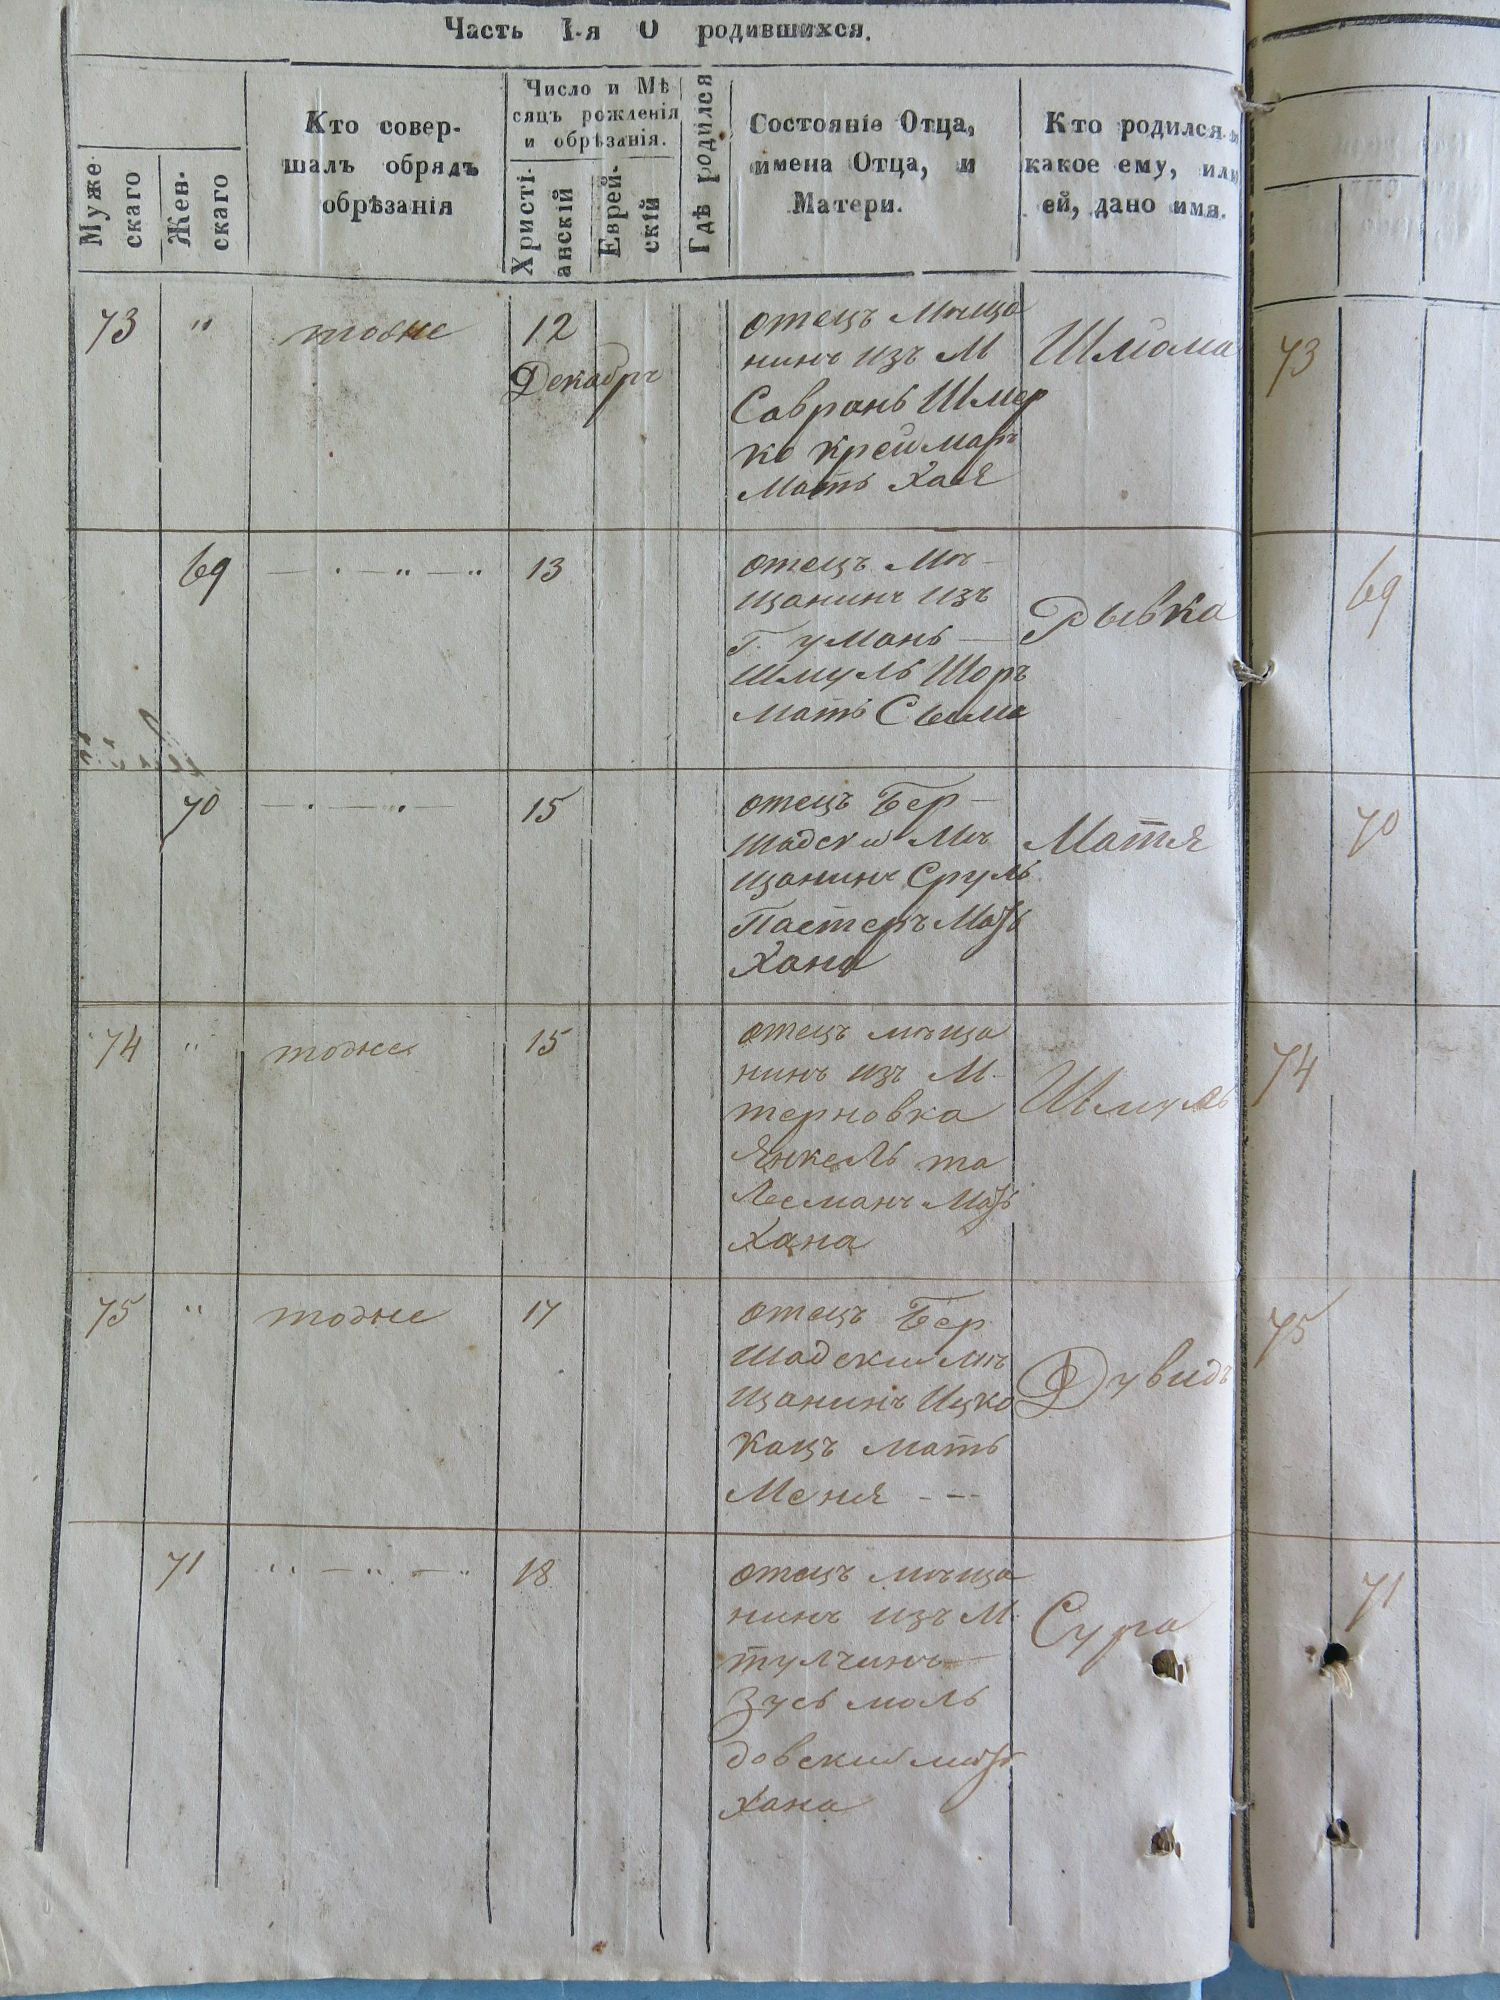 Часть I-я О родившихся.
Муже
скаго
Жен-
скаго
Кто совер-
шалъ обрядъ
обрѣзанія
Число и Мѣ
сяцъ рожденія
и обрѣзанія.
Христі-
анскій
Еврей-
скій
Гдѣ родился
Состояніе Отца,
имена Отца, и
Матери.
Кто родился
какое ему, или
ей, дано имя.
73 " тоже 12
Декабръ
отецъ мѣща
нинъ изъ М
Саврань Шмер
ко Креймаръ
Мать Хая
Шлома
73
69 — · — " — " 13
отецъ Мѣ-
щанинъ изъ
Г. Умань —
Шмуль Шоръ
Мать Сыма
Рывка
69
70 — · — " · — 15
отецъ Бер-
шадский Мѣ
щанинъ Сруль
Пастеръ Мать
Хана
Матя
70
74 " тоже 15
отецъ мѣща
нинъ изъ М.
терновка
Янкель та
лесманъ Мать
Хана
Шмуль
74
75 " тоже 17
отецъ Бер
шадский мѣ
щанинъ Ицко
Кацъ мать
Меня - --
Дувидъ
75
71 " — " — " 18
отецъ мѣща
нинъ изъ М.
тулчинъ —
Зусь моль
довский мать
Хана
Сура
71